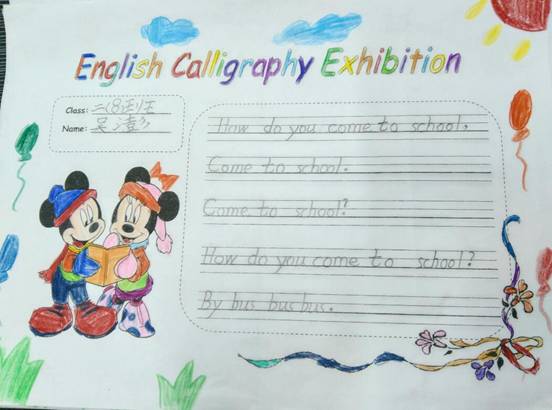 English Calligraphy Exhibition
Class: 二(8)班
Name: 吴
How do you come to school,
Come to school.
Come to school?
How do you come to school?
By bus bus bus.